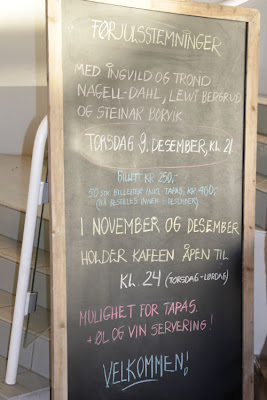 FØRJULSSTEMNINGER
MED INGVILD OG TROND
NAGELL-DAHL, LEWI BERGRUD
OG STEINAR BORVIK
TORSDAG 9. DESEMBER, KL. 21
BILLETT KR 250,-
50 STK BILLETTER INKL TAPAS, KR 400,-
I NOVEMBER OG DESEMBER
HOLDER KAFEEN ÅPEN TIL
KL. 24 (TORSDAG-LØRDAG)
MULIGHET FOR TAPAS.
+ ØL OG VIN SERVERING!
VELKOMMEN!